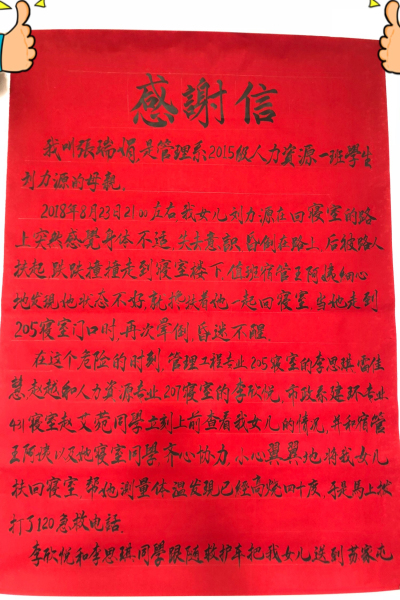 感謝信
我叫張瑞娟,是管理系2015级人力资源一班學生
刘力源的母親。
2018年8月23日21:00左右我女儿刘力源在回寝室的路
上突然感覺身体不适,失去意識,昏倒在路上,后被路人
扶起,跌跌撞撞走到寝室楼下,值班宿管王阿姨细心
地发现他状态不好,就搀扶着他一起回寝室,当她走到
205寝室门口时,再次晕倒,昏迷不醒。
在这个危险的时刻,管理工程专业205寝室的李思琪、雷佳
慧、赵越和人力资源专业207寝室的李欣悦,市政系建环专业
431寝室赵艾苑同学立刻上前查看我女儿的情况,并和宿管
王阿姨以及她寝室同學齐心协力,小心翼翼地将我女儿
扶回寝室,帮他测量体温发现已经高烧四十度,于是马上拨
打了120急救电话。
李欣悦和李思琪同學跟随救护车把我女儿送到苏家屯